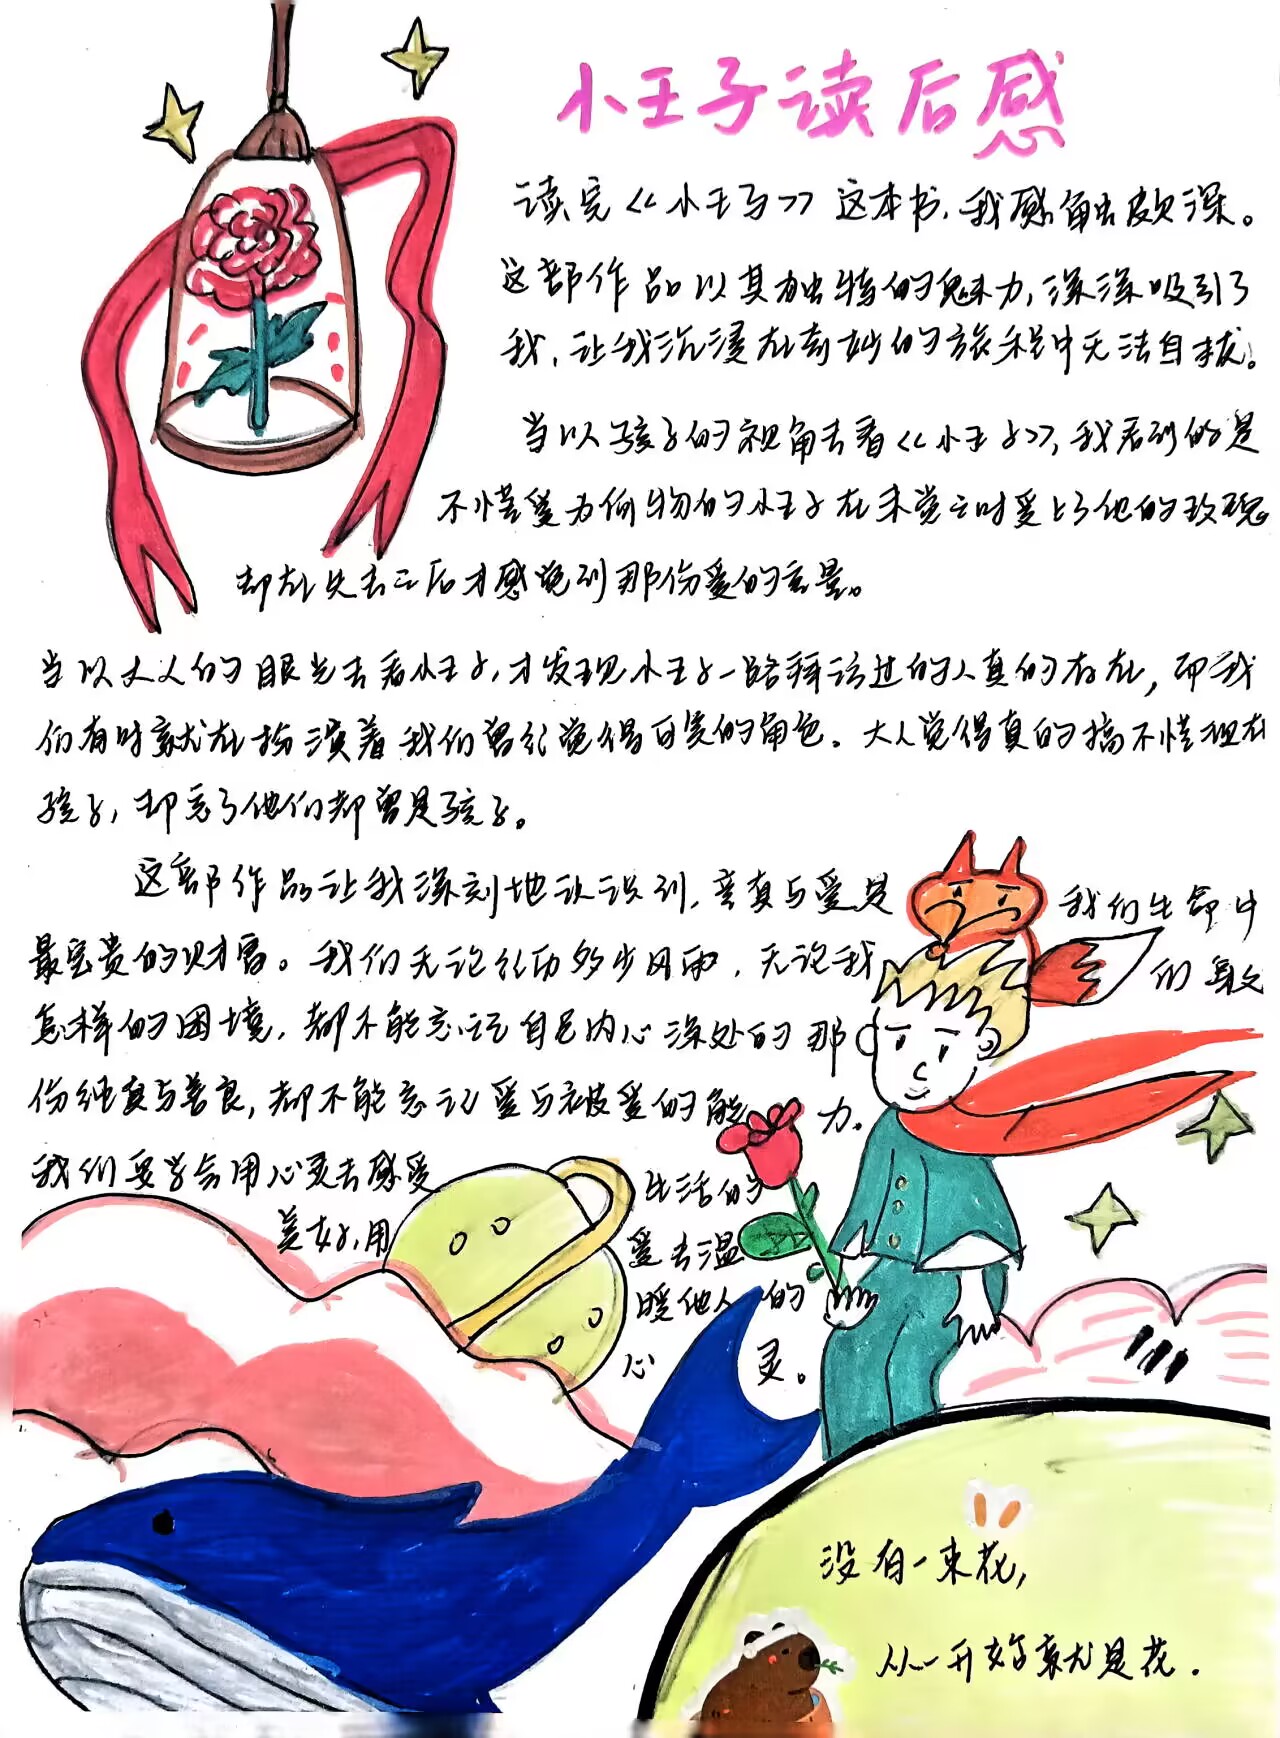 小王子读后感
读完《小王子》这本书，我感触颇深。
这部作品以其独特的魅力，深深吸引了
我，让我沉浸在奇妙的旅程中无法自拔。
当以孩子的视角去看《小王子》，我看到的是
不懂爱为何物的小王子在未觉之时爱上了他的玫瑰
却在失去之后才感觉到那份爱的重量。
当以大人的眼光去看小王子，才发现小王子一路拜访过的人真的存在，而我
们有时就在扮演着我们曾经觉得可笑的角色。大人觉得真的搞不懂现在
孩子，却忘了他们都曾是孩子。
这部作品让我深刻地认识到，童真与爱是我们生命中
最宝贵的财富。我们无论经历多少风雨，无论我们身处
怎样的困境，都不能忘记自己内心深处的那
份纯真与善良，都不能忘记爱与被爱的能力。
我们要学会用心灵去感受生活的
美好，用爱去温
暖他人的
心灵。
没有一束花，
从一开始就是花．